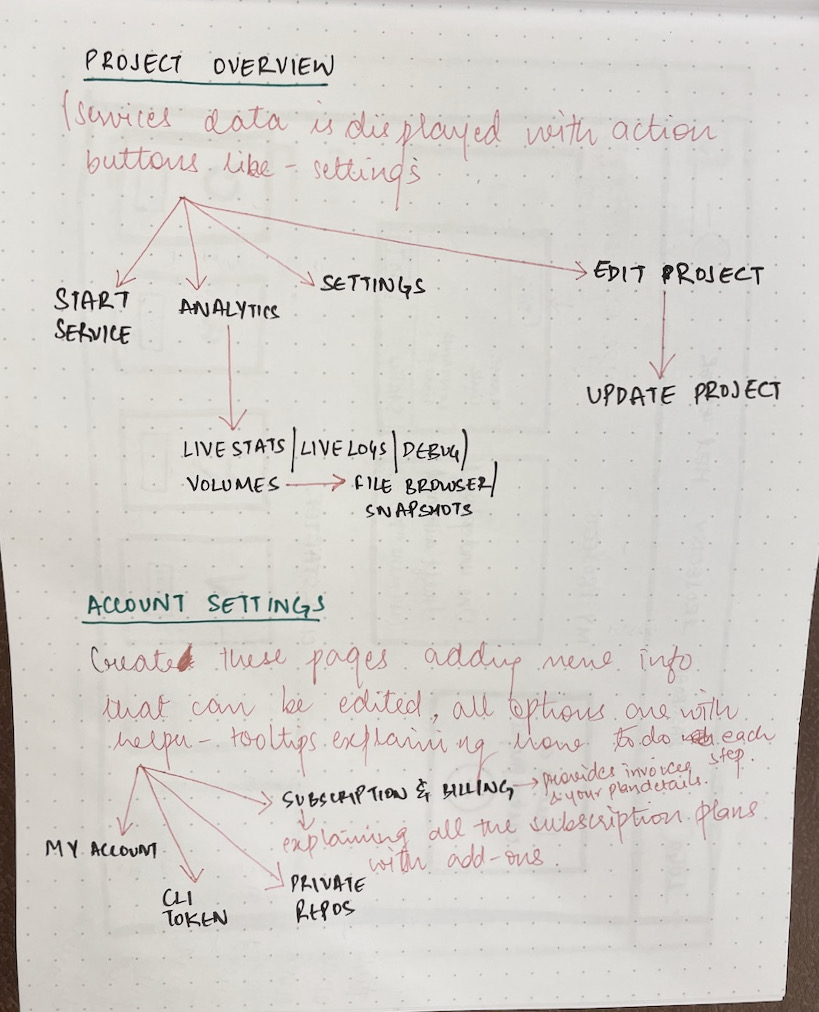 PROJECT OVERVIEW
(services data is displayed with action
buttons like - settings
START
SERVICE
ANALYTICS
SETTINGS
EDIT PROJECT
UPDATE PROJECT
LIVE STATS | LIVE LOGS | DEBUG |
VOLUMES → FILE BROWSER |
SNAPSHOTS
ACCOUNT SETTINGS
Created these pages adding more info
that can be edited, all options are with
- tooltips explaining how to do each
step.
SUBSCRIPTION & BILLING → provides invoices
& your plan details.
explaining all the subscription plans
with add-ons.
MY ACCOUNT
CLI
TOKEN
PRIVATE
REPOS